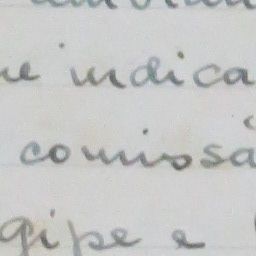 indica
comissã
gipe e